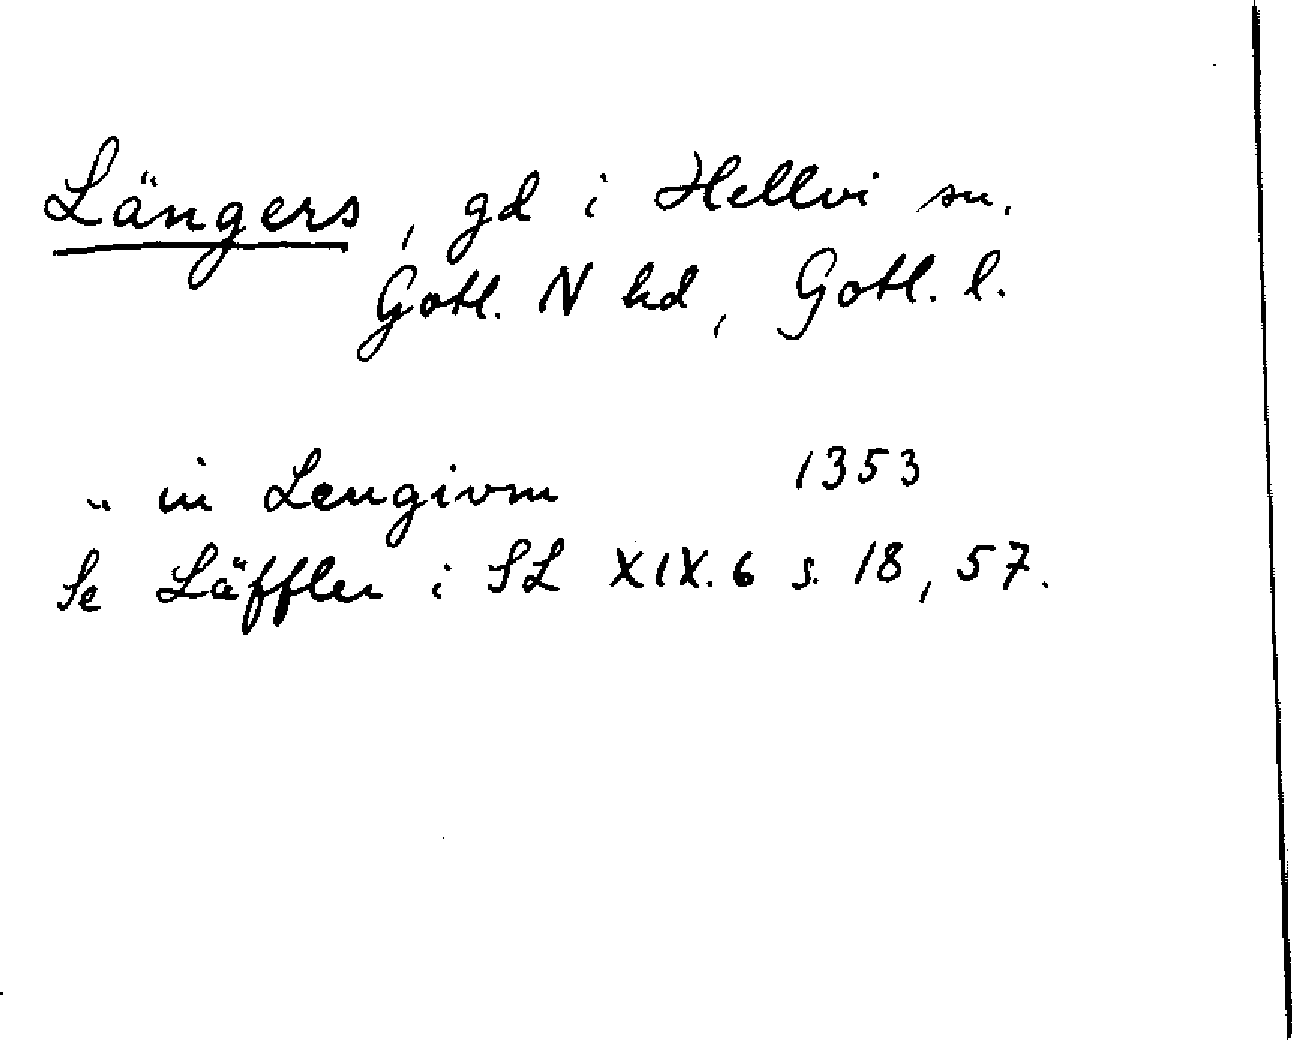 Längers, gd i Hellvi sn.
Gotl. N hd, Gotl. l.
„ in Lengivm 1353
Se Läffler i SL XIX.6 s. 18, 57.